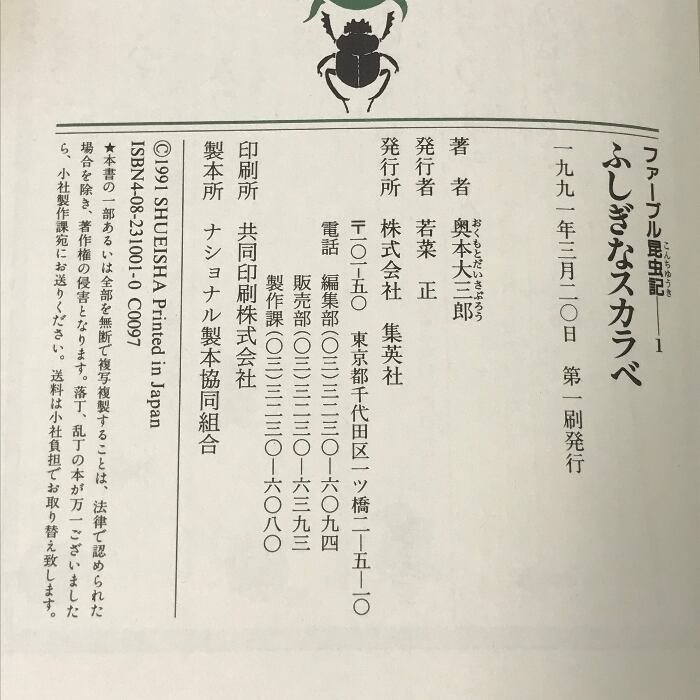 ファーブル昆虫記——1
こんちゅうき
ふしぎなスカラベ
一九九一年三月二〇日　第一刷発行
著　者　奥本大三郎
おくもとだいさぶろう
発行者　若菜　正
発行所　株式会社　集英社
〒一〇一—五〇　東京都千代田区一ツ橋二—五—一〇
電話　編集部(〇三)三二三〇—六〇九四
販売部(〇三)三二三〇—六三九三
製作課(〇三)三二三〇—六〇八〇
印刷所　共同印刷株式会社
製本所　ナショナル製本協同組合
©1991 SHUEISHA Printed in Japan
ISBN4-08-231001-0 C0097
★本書の一部あるいは全部を無断で複写複製することは、法律で認められた
場合を除き、著作権の侵害となります。落丁、乱丁の本が万一ございました
ら、小社製作課宛にお送りください。送料は小社負担でお取り替え致します。